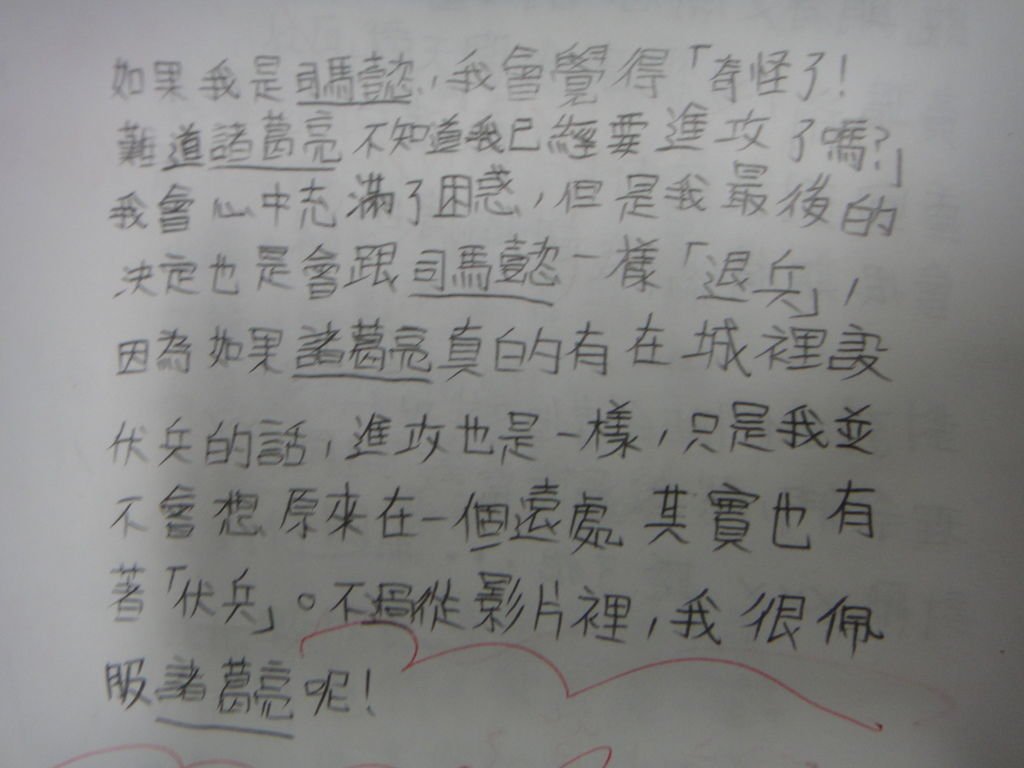 如果我是司馬懿，我會覺得「奇怪了！
難道諸葛亮不知道我已經要進攻了嗎？」
我會心中充滿了困惑，但是我最後的
決定也是會跟司馬懿一樣「退兵」，
因為如果諸葛亮真的有在城裡設
伏兵的話，進攻也是一樣，只是我並
不會想原來在一個遠處其實也有
著「伏兵」。不過從影片裡，我很佩
服諸葛亮呢！